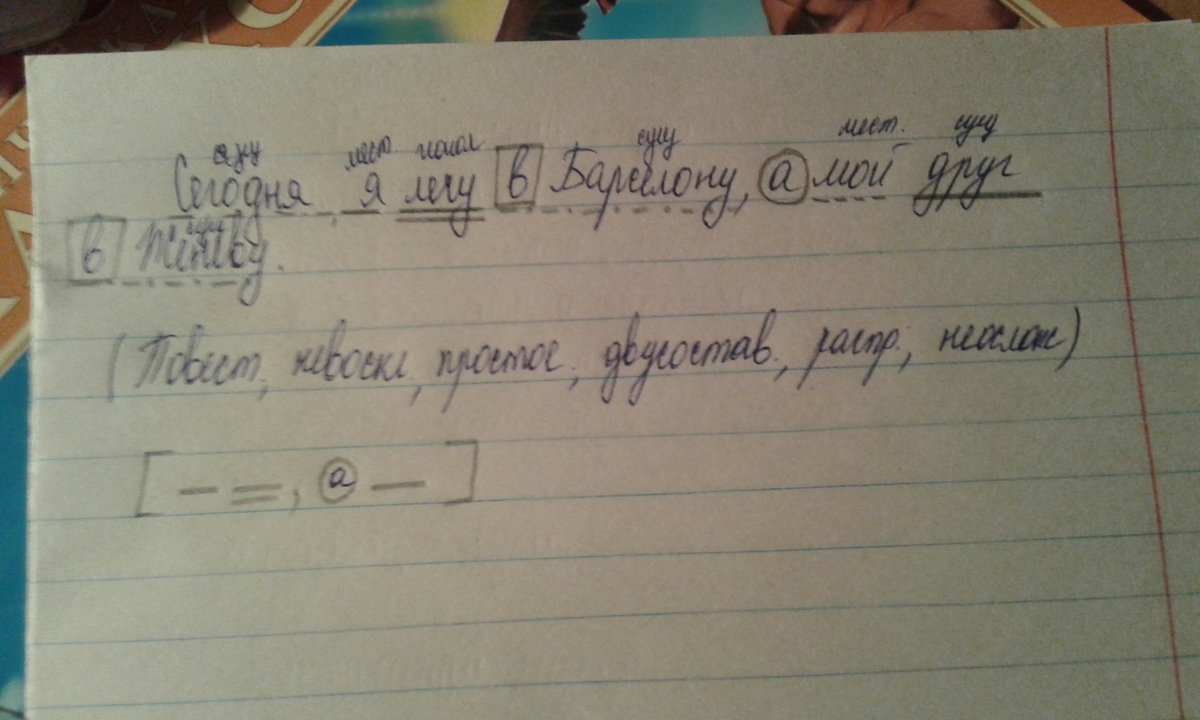 сущ мест глагол сущ мест. сущ
Сегодня я лечу в Барселону, а мой друг
сущ
в Женеву.
(Повест, невоскл, простое, двусостав., распр., неослож)
[— =, а —]